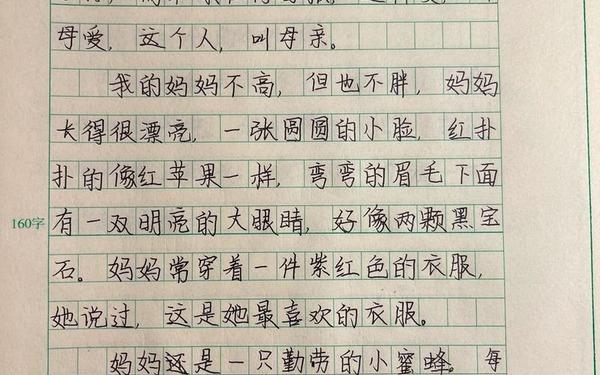 母爱,这个人,叫母亲。
我的妈妈不高,但也不胖,妈妈
长得很漂亮,一张圆圆的小脸,红扑
扑的像红苹果一样,弯弯的眉毛下面
160字
有一双明亮的大眼睛,好像两颗黑宝
石。妈妈常穿着一件紫红色的衣服,
她说过,这是她最喜欢的衣服。
妈妈还是一只勤劳的小蜜蜂。每